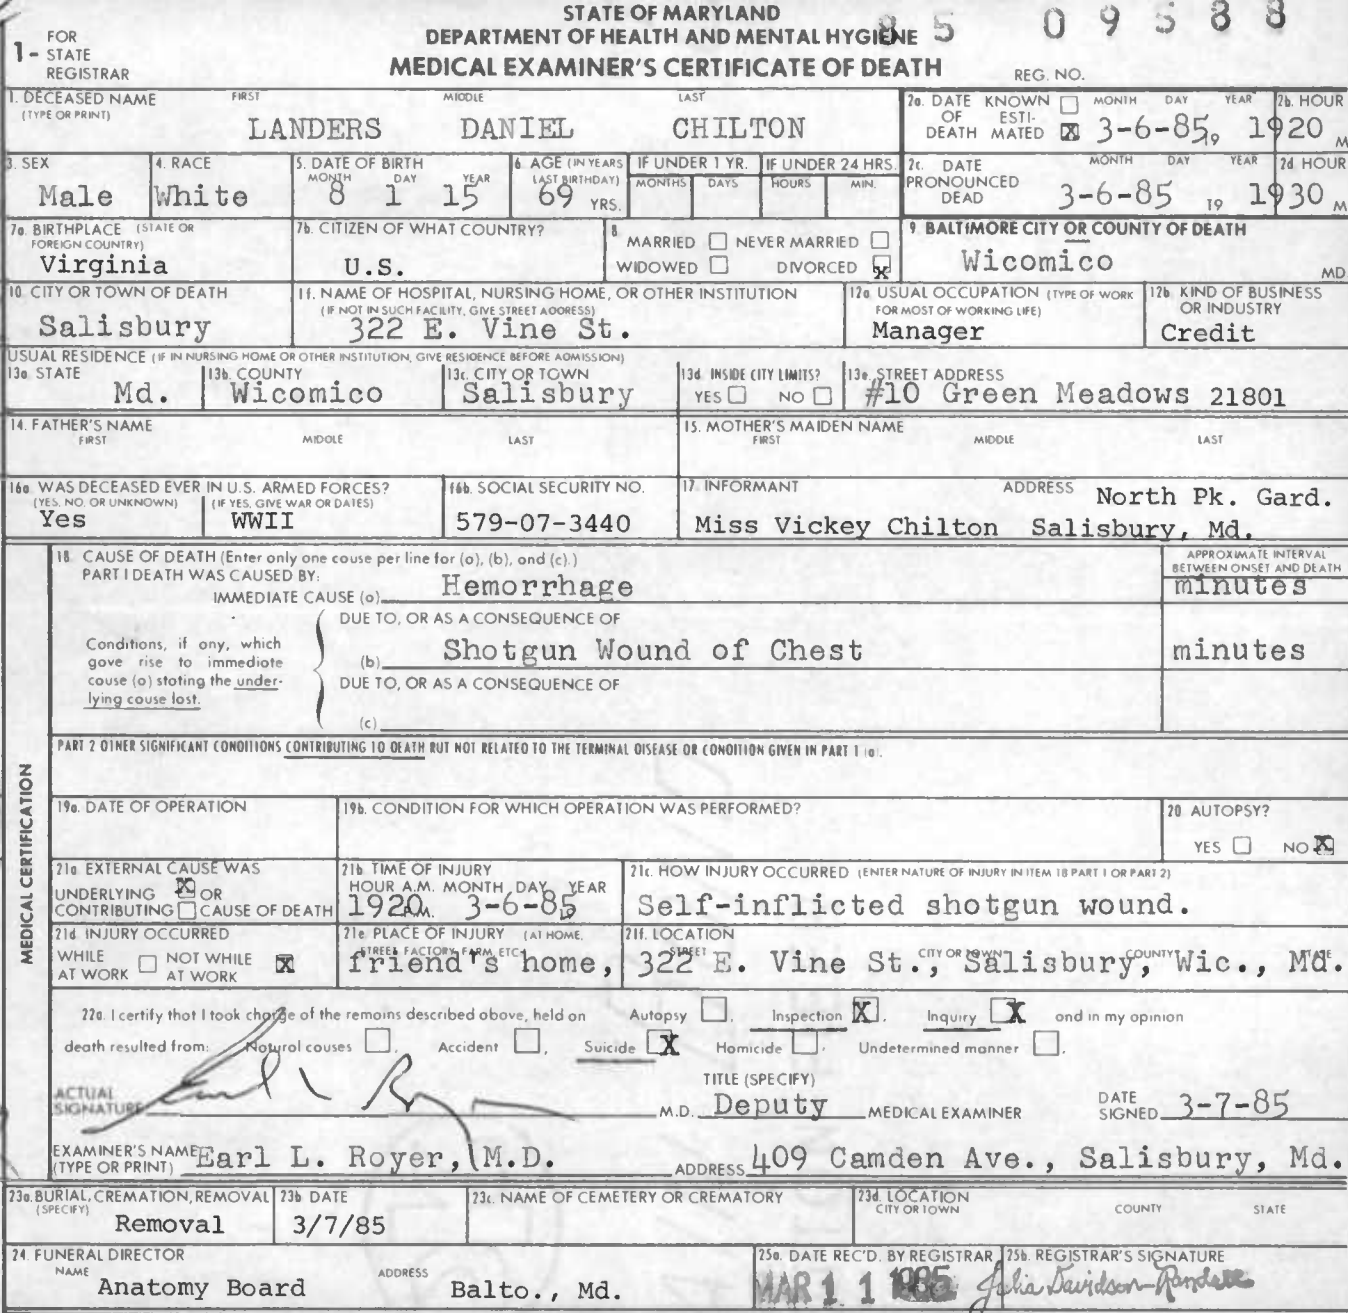 STATE OF MARYLAND
DEPARTMENT OF HEALTH AND MENTAL HYGIENE
MEDICAL EXAMINER'S CERTIFICATE OF DEATH
85 09588
REG. NO.
1- FOR STATE REGISTRAR
1. DECEASED NAME (TYPE OR PRINT) FIRST MIDDLE LAST
LANDERS DANIEL CHILTON
2a. DATE OF DEATH KNOWN ☐ ESTIMATED ☒ MONTH DAY YEAR
3-6-85, 19
2b. HOUR
1920 M
3. SEX
Male
4. RACE
White
5. DATE OF BIRTH MONTH DAY YEAR
8 1 15
6. AGE (IN YEARS LAST BIRTHDAY)
69 YRS.
IF UNDER 1 YR. MONTHS DAYS
IF UNDER 24 HRS. HOURS MIN.
2c. DATE PRONOUNCED DEAD MONTH DAY YEAR
3-6-85 19
2d. HOUR
1930 M
7a. BIRTHPLACE (STATE OR FOREIGN COUNTRY)
Virginia
7b. CITIZEN OF WHAT COUNTRY?
U.S.
8. MARRIED ☐ NEVER MARRIED ☐
WIDOWED ☐ DIVORCED ☒
9. BALTIMORE CITY OR COUNTY OF DEATH
Wicomico MD
10. CITY OR TOWN OF DEATH
Salisbury
11. NAME OF HOSPITAL, NURSING HOME, OR OTHER INSTITUTION
(IF NOT IN SUCH FACILITY, GIVE STREET ADDRESS)
322 E. Vine St.
12a. USUAL OCCUPATION (TYPE OF WORK FOR MOST OF WORKING LIFE)
Manager
12b. KIND OF BUSINESS OR INDUSTRY
Credit
USUAL RESIDENCE (IF IN NURSING HOME OR OTHER INSTITUTION, GIVE RESIDENCE BEFORE ADMISSION)
13a. STATE
Md.
13b. COUNTY
Wicomico
13c. CITY OR TOWN
Salisbury
13d. INSIDE CITY LIMITS?
YES ☐ NO ☐
13e. STREET ADDRESS
#10 Green Meadows 21801
14. FATHER'S NAME
FIRST MIDDLE LAST
15. MOTHER'S MAIDEN NAME
FIRST MIDDLE LAST
16a. WAS DECEASED EVER IN U.S. ARMED FORCES?
(YES, NO, OR UNKNOWN) (IF YES, GIVE WAR OR DATES)
Yes WWII
16b. SOCIAL SECURITY NO.
579-07-3440
17. INFORMANT ADDRESS
North Pk. Gard.
Miss Vickey Chilton Salisbury, Md.
18. CAUSE OF DEATH (Enter only one cause per line for (a), (b), and (c).)
PART I DEATH WAS CAUSED BY:
APPROXIMATE INTERVAL BETWEEN ONSET AND DEATH
IMMEDIATE CAUSE (a) Hemorrhage minutes
DUE TO, OR AS A CONSEQUENCE OF
Conditions, if any, which gave rise to immediate cause (a) stating the underlying cause last.
(b) Shotgun Wound of Chest minutes
DUE TO, OR AS A CONSEQUENCE OF
(c)
PART 2 OTHER SIGNIFICANT CONDITIONS CONTRIBUTING TO DEATH BUT NOT RELATED TO THE TERMINAL DISEASE OR CONDITION GIVEN IN PART 1 (a).
MEDICAL CERTIFICATION
19a. DATE OF OPERATION
19b. CONDITION FOR WHICH OPERATION WAS PERFORMED?
20 AUTOPSY?
YES ☐ NO ☒
21a EXTERNAL CAUSE WAS
UNDERLYING ☒ OR
CONTRIBUTING ☐ CAUSE OF DEATH
21b TIME OF INJURY
HOUR A.M. MONTH DAY YEAR
1920 3-6-85
21c. HOW INJURY OCCURRED (ENTER NATURE OF INJURY IN ITEM 18 PART 1 OR PART 2)
Self-inflicted shotgun wound.
21d INJURY OCCURRED
WHILE AT WORK ☐ NOT WHILE AT WORK ☒
21e. PLACE OF INJURY (AT HOME, STREET, FACTORY, FARM, ETC.)
friend's home,
21f. LOCATION
STREET CITY OR TOWN COUNTY STATE
322 E. Vine St., Salisbury, Wic., Md.
22a. I certify that I took charge of the remains described above, held on Autopsy ☐, Inspection ☒, Inquiry ☒ and in my opinion
death resulted from: Natural causes ☐, Accident ☐, Suicide ☒ Homicide ☐, Undetermined manner ☐.
ACTUAL SIGNATURE Earl L Royer M.D.
TITLE (SPECIFY)
Deputy MEDICAL EXAMINER
DATE SIGNED 3-7-85
EXAMINER'S NAME (TYPE OR PRINT) Earl L. Royer, M.D.
ADDRESS 409 Camden Ave., Salisbury, Md.
23a. BURIAL, CREMATION, REMOVAL (SPECIFY)
Removal
23b DATE
3/7/85
23c. NAME OF CEMETERY OR CREMATORY
23d. LOCATION
CITY OR TOWN COUNTY STATE
24. FUNERAL DIRECTOR
NAME ADDRESS
Anatomy Board Balto., Md.
25a. DATE REC'D. BY REGISTRAR
MAR 11 1985
25b. REGISTRAR'S SIGNATURE
Julia Davidson-Randall